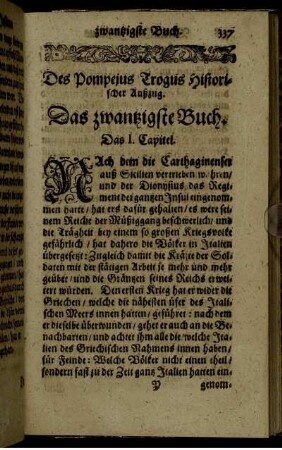 zwantzigste Buch. 337
Des Pompejus Trogus Histori-
scher Außzug.
Das zwantzigste Buch.
Das 1. Capitel.
NAch dem die Carthaginenser
auß Sicilien vertrieben waren/
und der Dionysius das Regi-
ment der gantzen Insul eingenom-
men hatte/ hat er dafür gehalten/ es were sei-
nem Reiche der Müßiggang beschwerlich/ und
die Trägheit bey einem so großen Kriegsvolcke
gefährlich/ hat dahero die Völcker in Italien
übergesetzt: Zugleich damit die Kräfte der Sol-
daten mit der stätigen Arbeit je mehr und mehr
geübet/ und die Gräntzen seines Reichs erwei-
tert würden. Den ersten Krieg hat er wider die
Griechen/ welche die nähesten üfer des Itali-
schen Meers innen hatten/ geführet: nach dem
er dieselbe überwunden/ gehet er auch an die Be-
nachbarten/ und achtet ihm alle die welche Ita-
lien des Griechischen Nahmens innen haben/
für Feinde: Welche Völcker nicht einen theil/
sondern fast zu der Zeit gantz Italien hatten ein-
P genom-